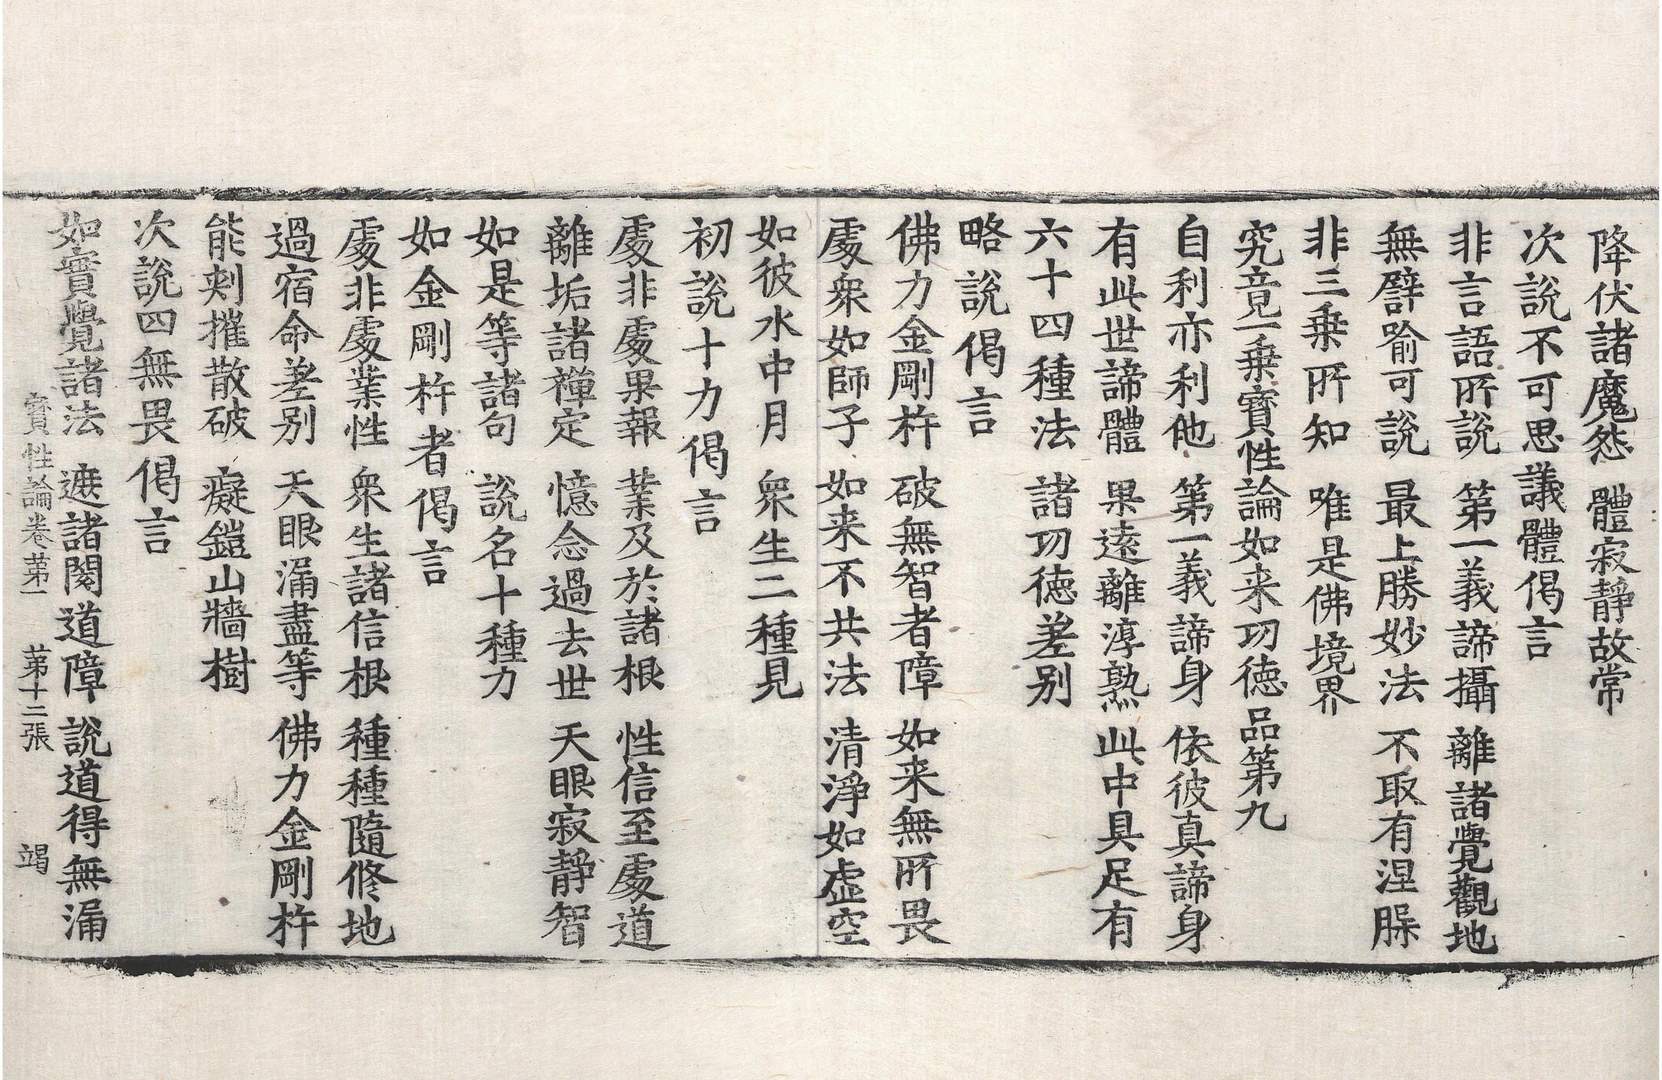 降伏諸魔怨　體寂靜故常
次說不可思議體偈言
非言語所說　第一義諦攝　離諸覺觀地
無譬喻可說　最上勝妙法　不取有涅槃
非三乗所知　唯是佛境界
究竟一乗寶性論如来功德品第九
自利亦利他　第一義諦身　依彼真諦身
有此世諦體　果遠離淳熟　此中具足有
六十四種法　諸功德差别
略說偈言
佛力金剛杵　破無智者障　如来無所畏
處衆如師子　如来不共法　清淨如虛空
如彼水中月　衆生二種見
初說十力偈言
處非處果報　業及於諸根　性信至處道
離垢諸禪定　憶念過去世　天眼寂靜智
如是等諸句　說名十種力
如金剛杵者偈言
處非處業性　衆生諸信根　種種隨修地
過宿命差别　天眼漏盡等　佛力金剛杵
能刺摧散破　癡鎧山牆樹
次說四無畏偈言
如實覺諸法　遮諸閡道障　說道得無漏
寶性論卷苐一　苐十二張　竭